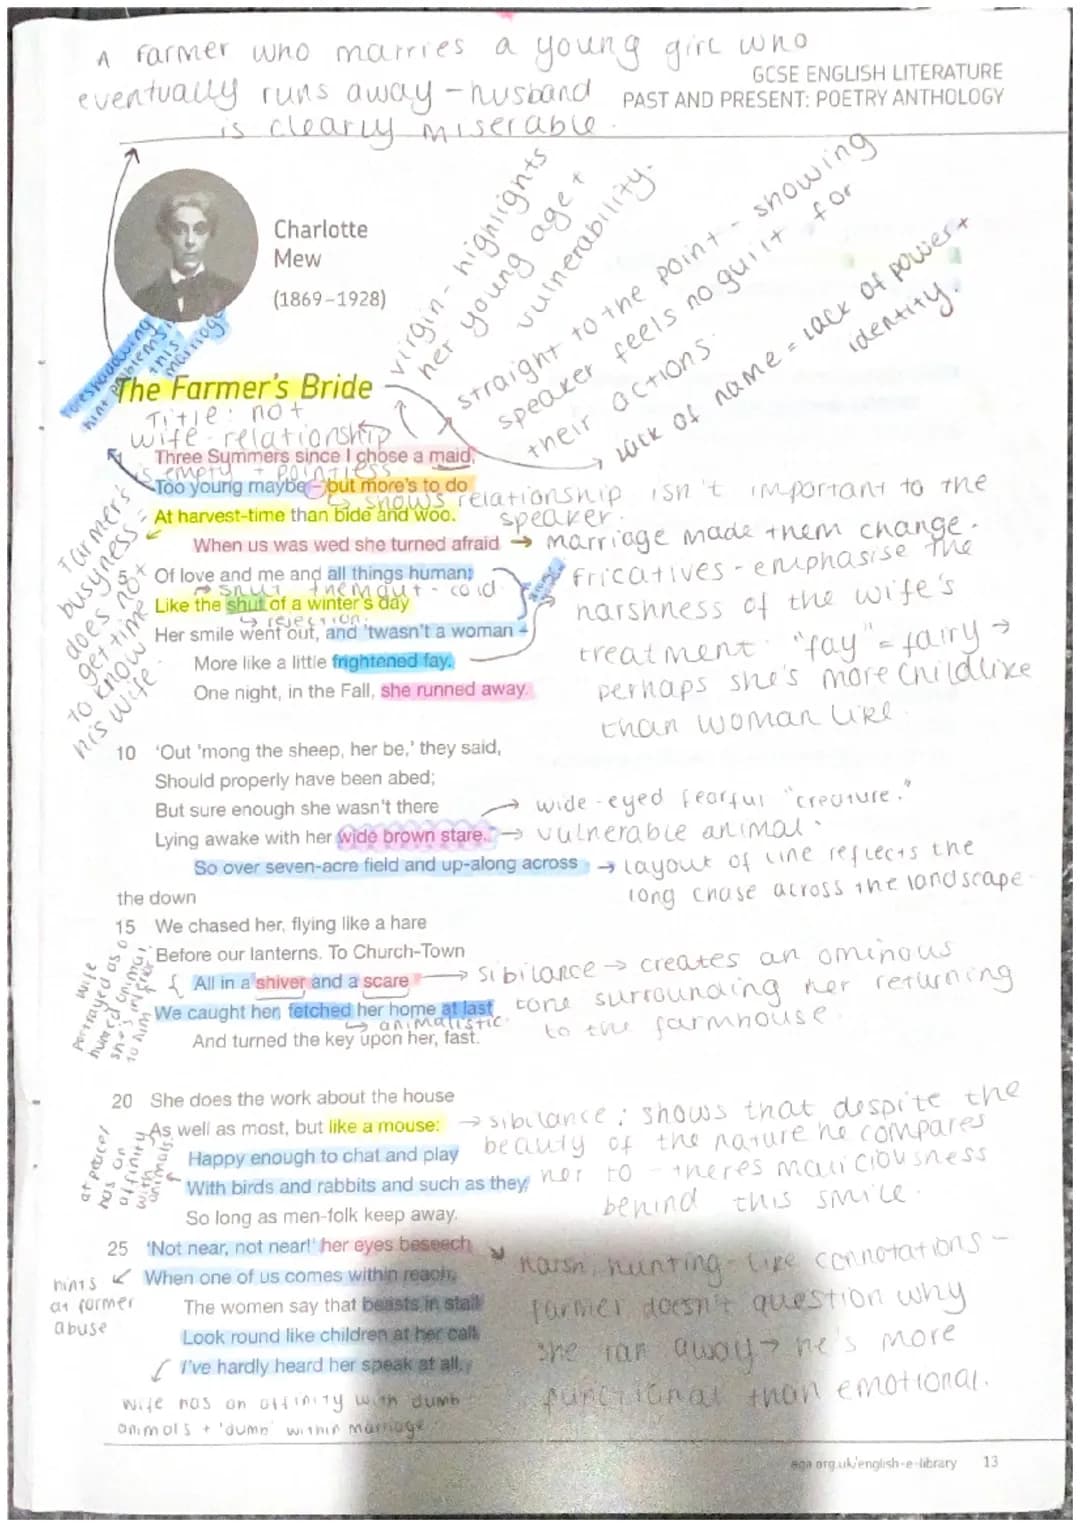 A Farmer who marries a young girl who
eventually runs away - husband
is clearly miserable.
GCSE ENGLISH LITERATURE
PAST AND PRESENT: POETRY ANTHOLOGY
Charlotte
Mew
(1869–1928)
Foreshadowing
hint problems in
this
marriage
virgin - highlights
her young age +
vulnerability.
straight to the point - showing
speaker feels no guilt for
their actions.
lack of name = lack of power +
identity.
The Farmer's Bride
Title: not
wife - relationship
is empty + pointless
Three Summers since I chose a maid,
Too young maybe – but more's to do
↳ shows relationship isn't important to the
speaker.
At harvest-time than bide and woo.
When us was wed she turned afraid → marriage made them change.
5 Of love and me and all things human;
→ shut them out - cold
Like the shut of a winter's day
↳ rejection.
Her smile went out, and 'twasn't a woman –
More like a little frightened fay.
One night, in the Fall, she runned away.
Farmer's
busyness =
does not
get time
to know
his wife.
fricatives - emphasise the
harshness of the wife's
treatment. "fay" = fairy →
perhaps she's more childlike
than woman like.
10 'Out 'mong the sheep, her be,' they said,
Should properly have been abed;
But sure enough she wasn't there
Lying awake with her wide brown stare.
→ wide-eyed fearful "creature."
→ vulnerable animal.
So over seven-acre field and up-along across
the down
→ layout of line reflects the
long chase across the landscape.
15 We chased her, flying like a hare
Before our lanterns. To Church-Town
All in a shiver and a scare
We caught her, fetched her home at last
↳ animalistic.
And turned the key upon her, fast.
wife
portrayed as a
hunted animal
she's inferior
to him
→ sibilance → creates an ominous
tone surrounding her returning
to the farmhouse.
20 She does the work about the house
As well as most, but like a mouse:
Happy enough to chat and play
With birds and rabbits and such as they,
So long as men-folk keep away.
at peace/
has an
affinity
with
animals.
→ sibilance: shows that despite the
beauty of the nature he compares
her to - theres maliciousness
behind this smile.
25 'Not near, not near!' her eyes beseech
When one of us comes within reach.
The women say that beasts in stall
Look round like children at her call.
I've hardly heard her speak at all.
hints
at farmer
abuse
harsh, hunting-like connotations -
farmer doesn't question why
she ran away → he's more
functional than emotional.
wife has an affinity with dumb
animals + 'dumb' within marriage
aqa.org.uk/english-e-library 13